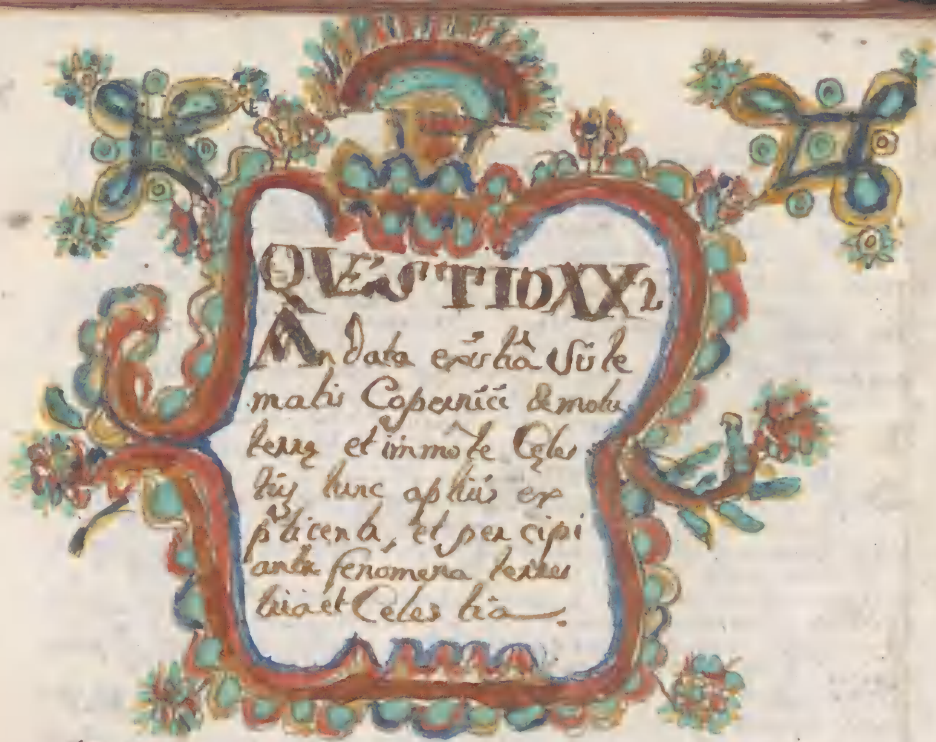 QVESTIO XX2
An data existtiâ Siste
matis Copernici de motu
terrę et immote Cęles
tiũ tunc aptius ex
plicentr, et percipi
antr fenómena terres
tria et Celestia.